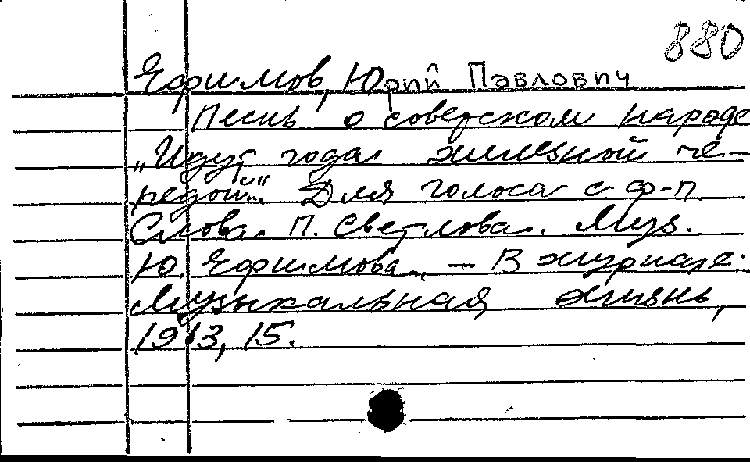 880
Ефимов, Юрий Павлович
Песнь о советском народе
„Идут года железной че-
редой..." Для голоса с ф-п.
Слова П. Светлова. Муз.
Ю. Ефимова. — В журнале:
Музыкальная жизнь,
1973, 15.